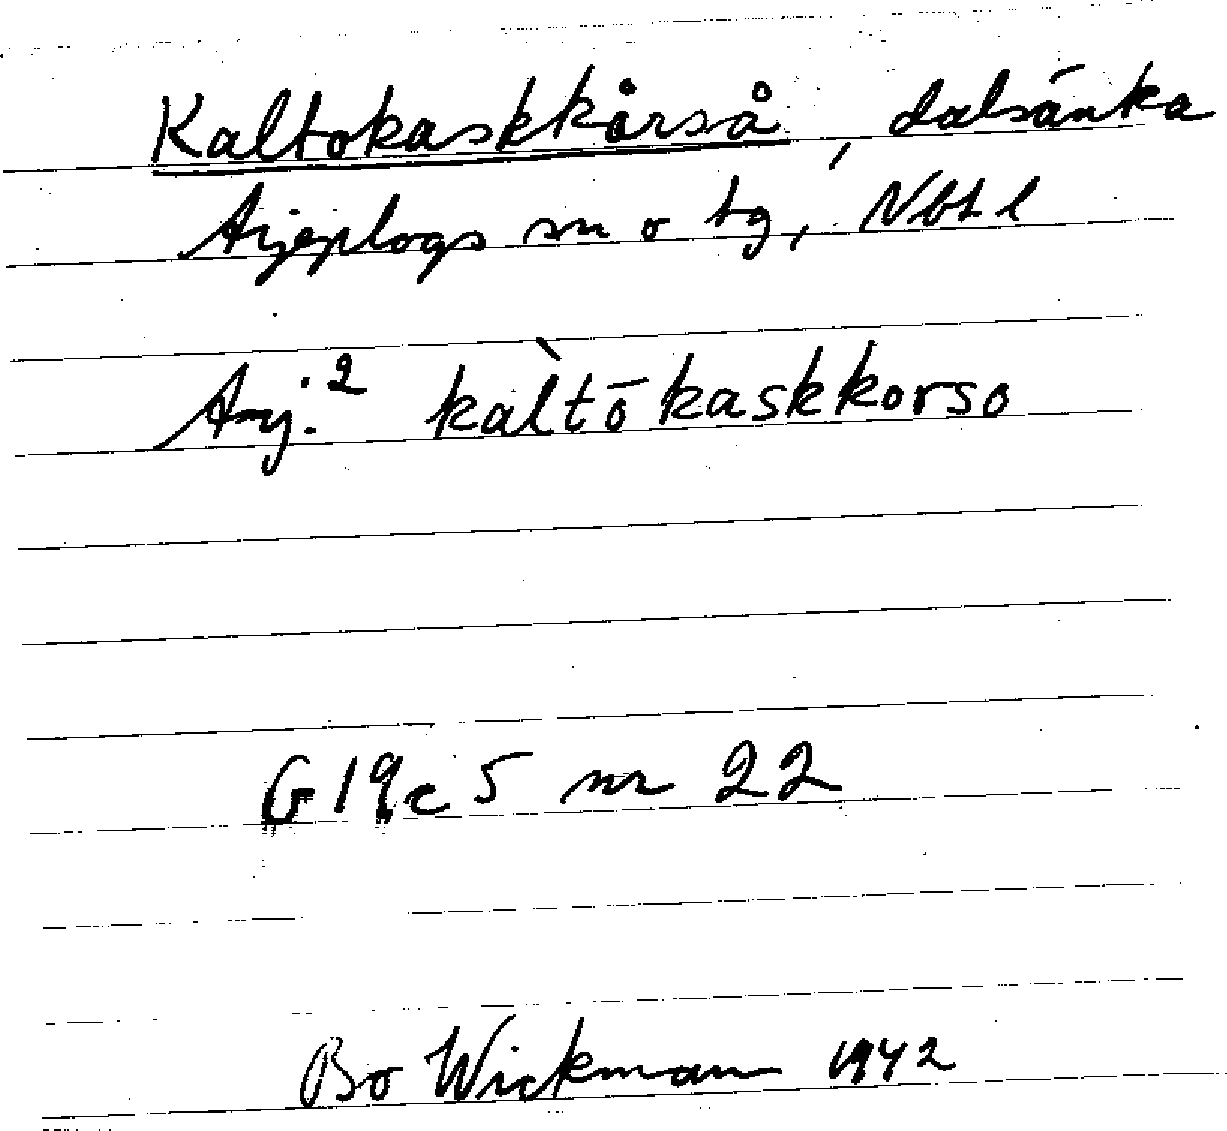 Kaltokaskkårså, dalsänka
Arjeplogs sn o tg, Nbt l
Arj.² kàltōkaskkorso
G 19 c 5 nr 22
Bo Wickman 1942